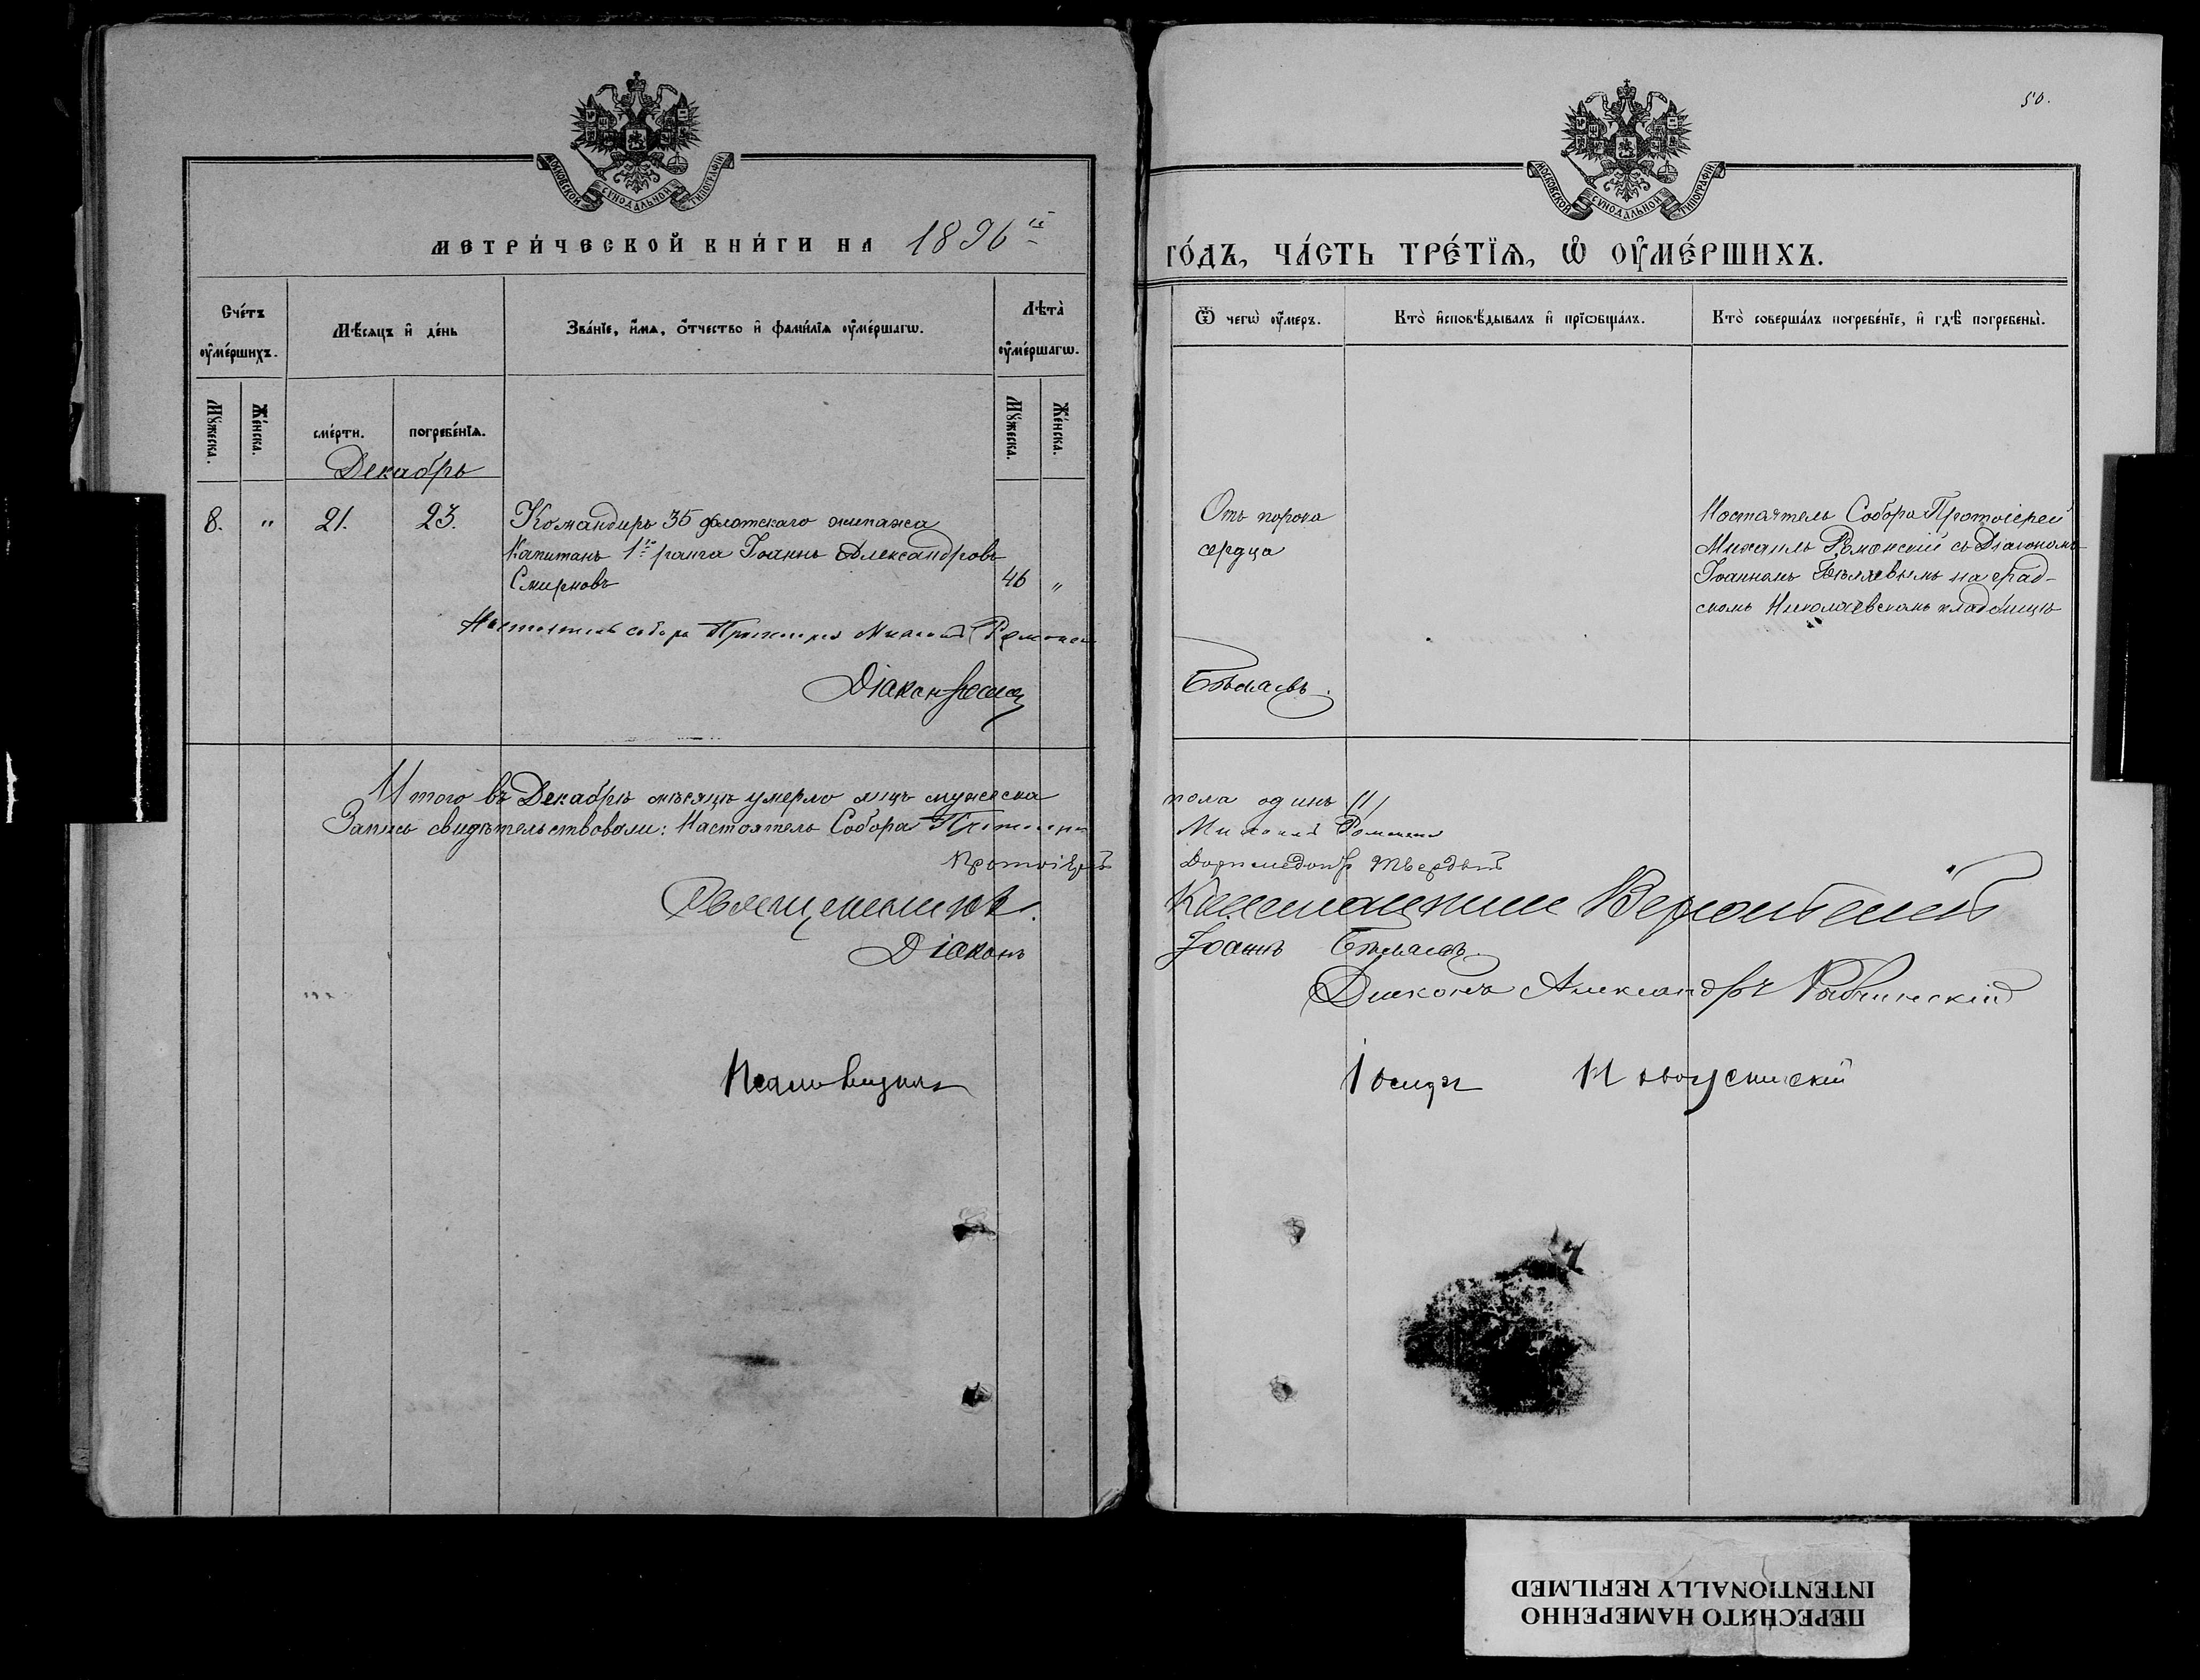 МОСКОВСКОЙ СУНОДАЛЬНОЙ ТИПОГРАФІИ
МЕТРИ́ЧЕСКОЙ КНИ́ГИ НА 1896 й
Сче́тъ оу҆ме́ршихъ.
Мѣ́сяцъ и҆ де́нь
Зва́нїе, и҆́мѧ, о҆́тчество и҆ фами́лїѧ оу҆ме́ршагѡ.
Лѣта̀ оу҆ме́ршагѡ.
Мꙋ́жеска.
Же́нска.
сме́рти.
погребе́нїѧ.
Мꙋ́жеска.
Же́нска.
Декабрь
8. " 21. 23. Командиръ 35 флотскаго экипажа
Капитанъ 1го ранга Іоаннъ Александровъ
Смирновъ 46 "
Настоятель собора Протоіерей Михаилъ Романскій
Діаконъ Іоаннъ
Итого въ Декабрѣ мѣсяцѣ умерло лицъ мужеска
Запись свидѣтельствовали: Настоятель Собора Протоіерей
Протоіерей
Священникъ
Діаконъ
Псаломщикъ
50.
МОСКОВСКОЙ СУНОДАЛЬНОЙ ТИПОГРАФІИ
ГО́ДЪ, ЧА́СТЬ ТРЕ́ТЇѦ, Ѡ҆ ОУ҆МЕ́РШИХЪ.
Ѿ чегѡ̀ оу҆́меръ.
Кто̀ и҆сповѣ́дывалъ и҆ прїѡбща́лъ.
Кто̀ соверша́лъ погребе́нїе, и҆ гдѣ̀ погребены̀.
Отъ порока
сердца
Настоятель Собора Протоіерей
Михаилъ Романскій съ Діакономъ
Іоанномъ Бѣляевымъ на град-
скомъ Николаевскомъ кладбищѣ
Бѣляевъ.
пола одинъ /1/
Михаилъ Романскій
Доримедонтъ Твердый
Константинъ
Іоаннъ Бѣляевъ.
Діаконъ Александръ
Іосифъ
ПЕРЕСНЯТО НАМЕРЕННО
INTENTIONALLY REFILMED